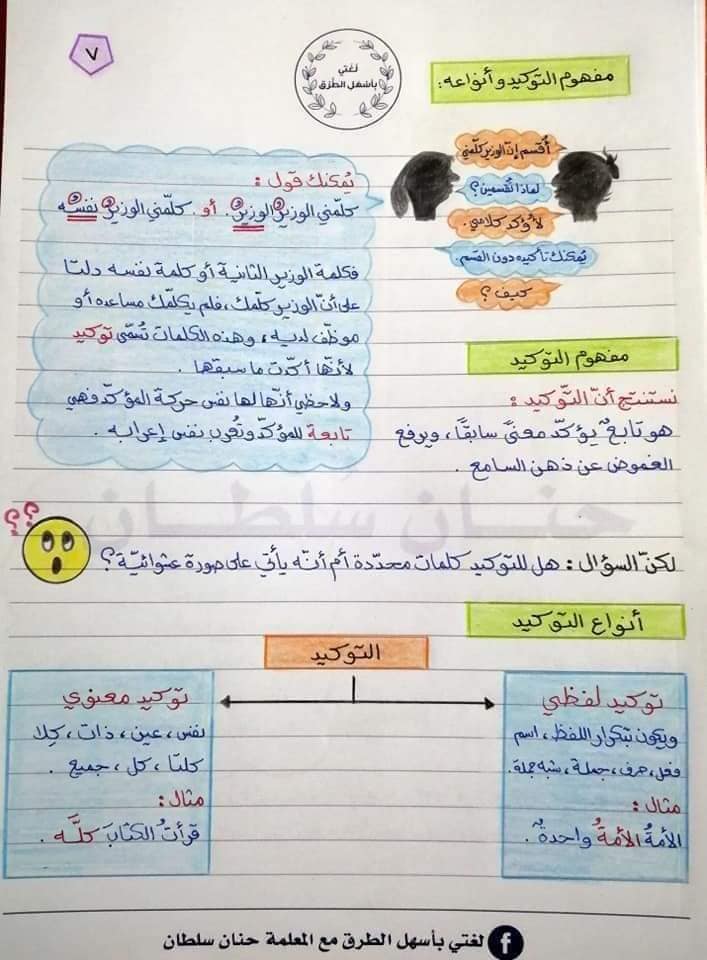 ٧
لغتي
بأسهل الطرق
مفهوم التوكيد وأنواعه:
أُقسم إنّ الوزير كلّمني
لماذا تُقسمين؟
لأؤكد كلامي.
يُمكنك تأكيده دون القسم.
كيف؟
يُمكنك قول:
كلّمني الوزيرُ الوزيرُ. أو. كلّمني الوزيرُ نفسُه
فكلمة الوزير الثانية أو كلمة نفسه دلتا
على أنّ الوزير كلّمك، فلم يكلّمك مساعده أو
موظّف لديه، وهذه الكلمات تُسمّى توكيد
لأنّها أكدّت ما سبقها.
ولاحظي أنّها لها نفس حركة المؤكّد فهي
تابعة للمؤكّد وتُعرب نفس إعرابه.
مفهوم التوكيد
نستنتج أنّ التّوكيد:
هو تابعٌ يؤكدّ معنىً سابقًا، ويرفع
الغموض عن ذهن السامع.
حنان سلطان
لكنّ السؤال: هل للتوكيد كلمات محدّدة أم أنّه يأتي على صورة عشوائيّة؟
؟؟
أنواع التوكيد
التوكيد
توكيد لفظي
ويكون بتكرار اللفظ، اسم
فعل، حرف، جملة، شبه جملة.
مثال:
الأمةُ الأمةُ واحدةٌ.
توكيد معنوي
نفس، عين، ذات، كِلا
كلتا، كل، جميع.
مثال:
قرأتُ الكتابَ كلَّه.
لغتي بأسهل الطرق مع المعلمة حنان سلطان